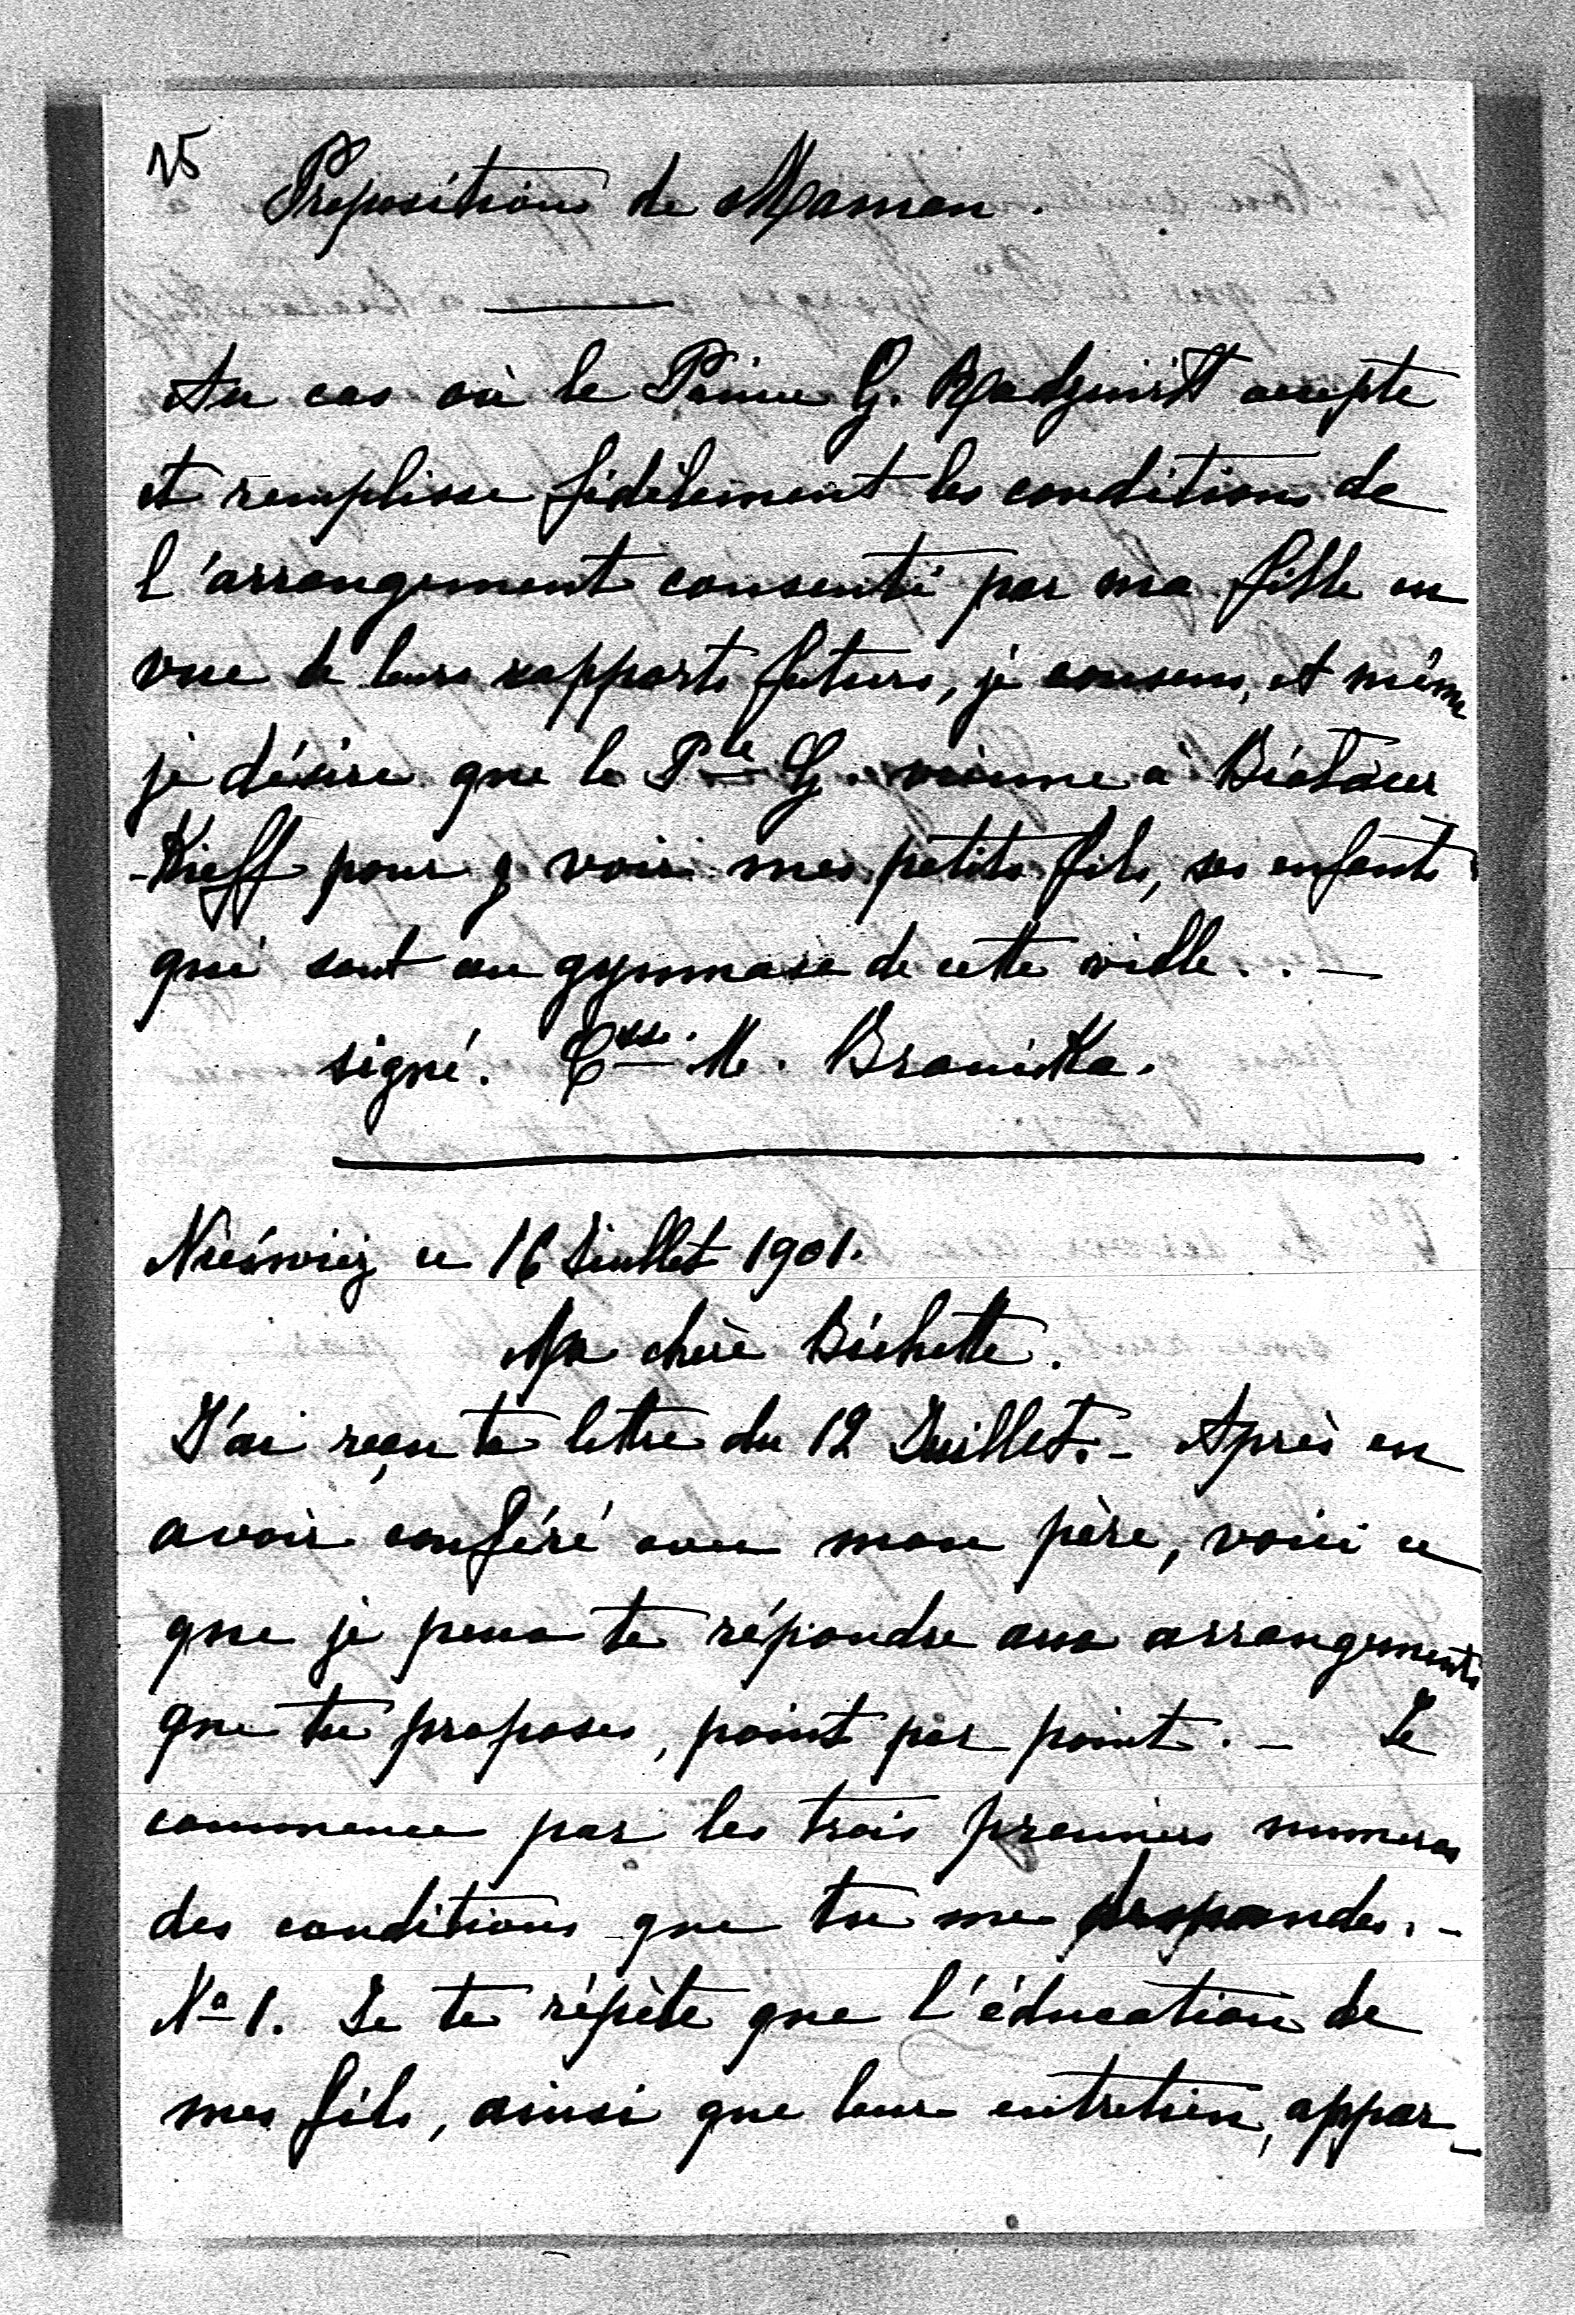 25
Propositions de Maman.
Au cas où le Prince G. Radziwiłł accepte
et remplisse fidèlement les conditions de
l'arrangement consenti par ma fille en
vue de leurs rapports futurs, je consens, et même
je désire que le Pce G. vienne à Białacer
-Kieff pour y voir mes petits fils, ses enfants
qui sont au gymnase de cette ville. . —
signé. Csse. M. Branicka.
Nieśwież ce 16 Juillet 1901.
Ma chère Bichette.
J'ai reçu ta lettre du 12 Juillet. – Après en
avoir conféré avec mon père, voici ce
que je peux te répondre aux arrangements
que tu proposes, point par point. – Je
commence par les trois premiers numeros
des conditions que tu me
No 1. Je te répète que l'éducation de
mes fils, ainsi que leur entretien, appar-